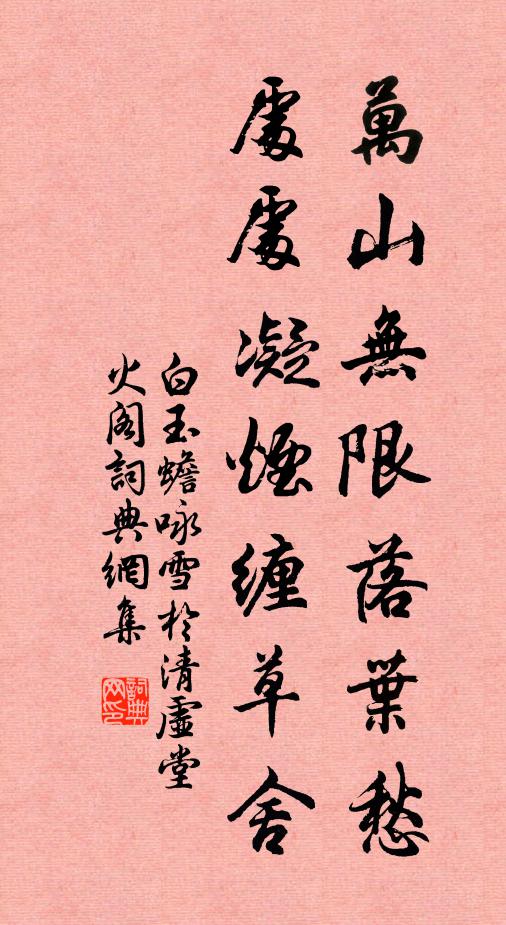 萬山無限落葉愁
處處凝煙纏草舍
白玉蟾咏雪於清虛堂
火閣詞典網集
詞典
网印